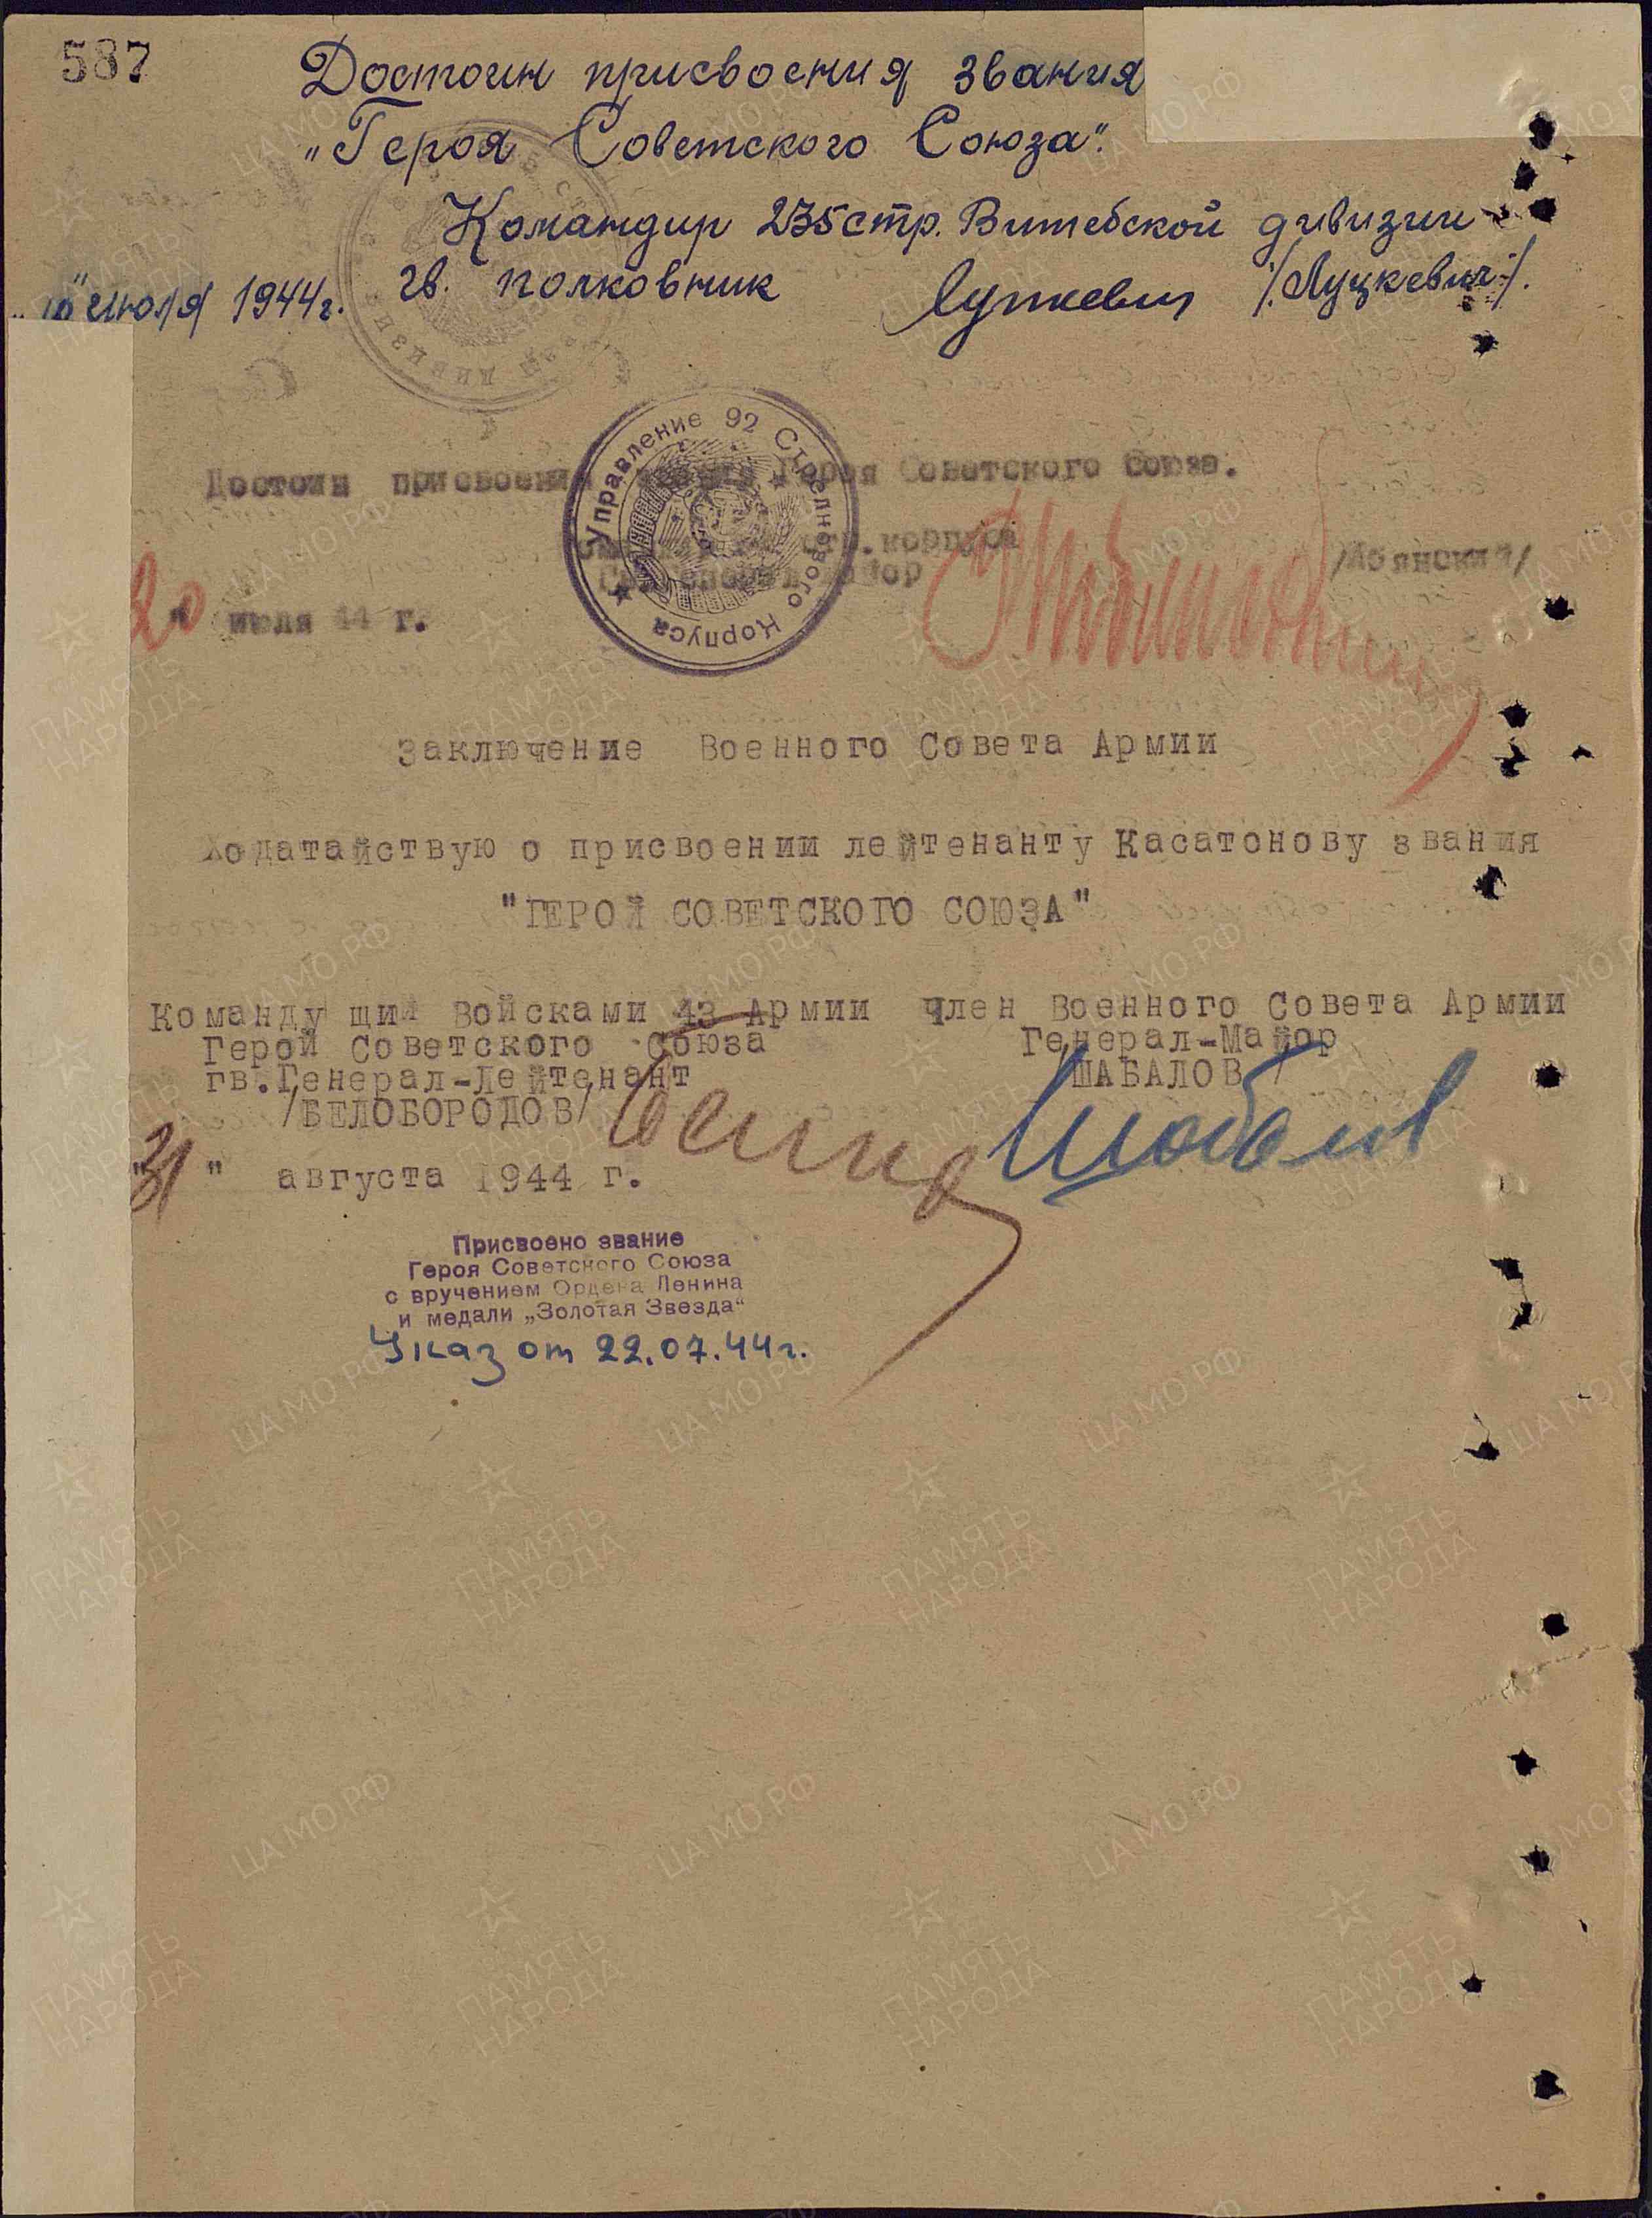 587
Достоин присвоения звания
„Героя Советского Союза".
Командир 235 стр. Витебской дивизии
гв. полковник /Луцкевич/.
июля 1944 г.
Управление 92 Стрелкового Корпуса
Достоин присвоения звания Героя Советского Союза.
стр.корпуса
майор
20 июля 44 г.
Заключение Военного Совета Армии
Ходатайствую о присвоении лейтенанту Касатонову звания
"ГЕРОЙ СОВЕТСКОГО СОЮЗА"
Команду щий Войсками 43 Армии Член Военного Совета Армии
Герой Советского Союза Генерал-Майор
гв.Генерал-Лейтенант /ШАБАЛОВ/
/БЕЛОБОРОДОВ/
"31" августа 1944 г.
Присвоено звание
Героя Советского Союза
с вручением Ордена Ленина
и медали „Золотая Звезда"
Указ от 22.07.44г.
ЦА МО РФ
ПАМЯТЬ
НАРОДА